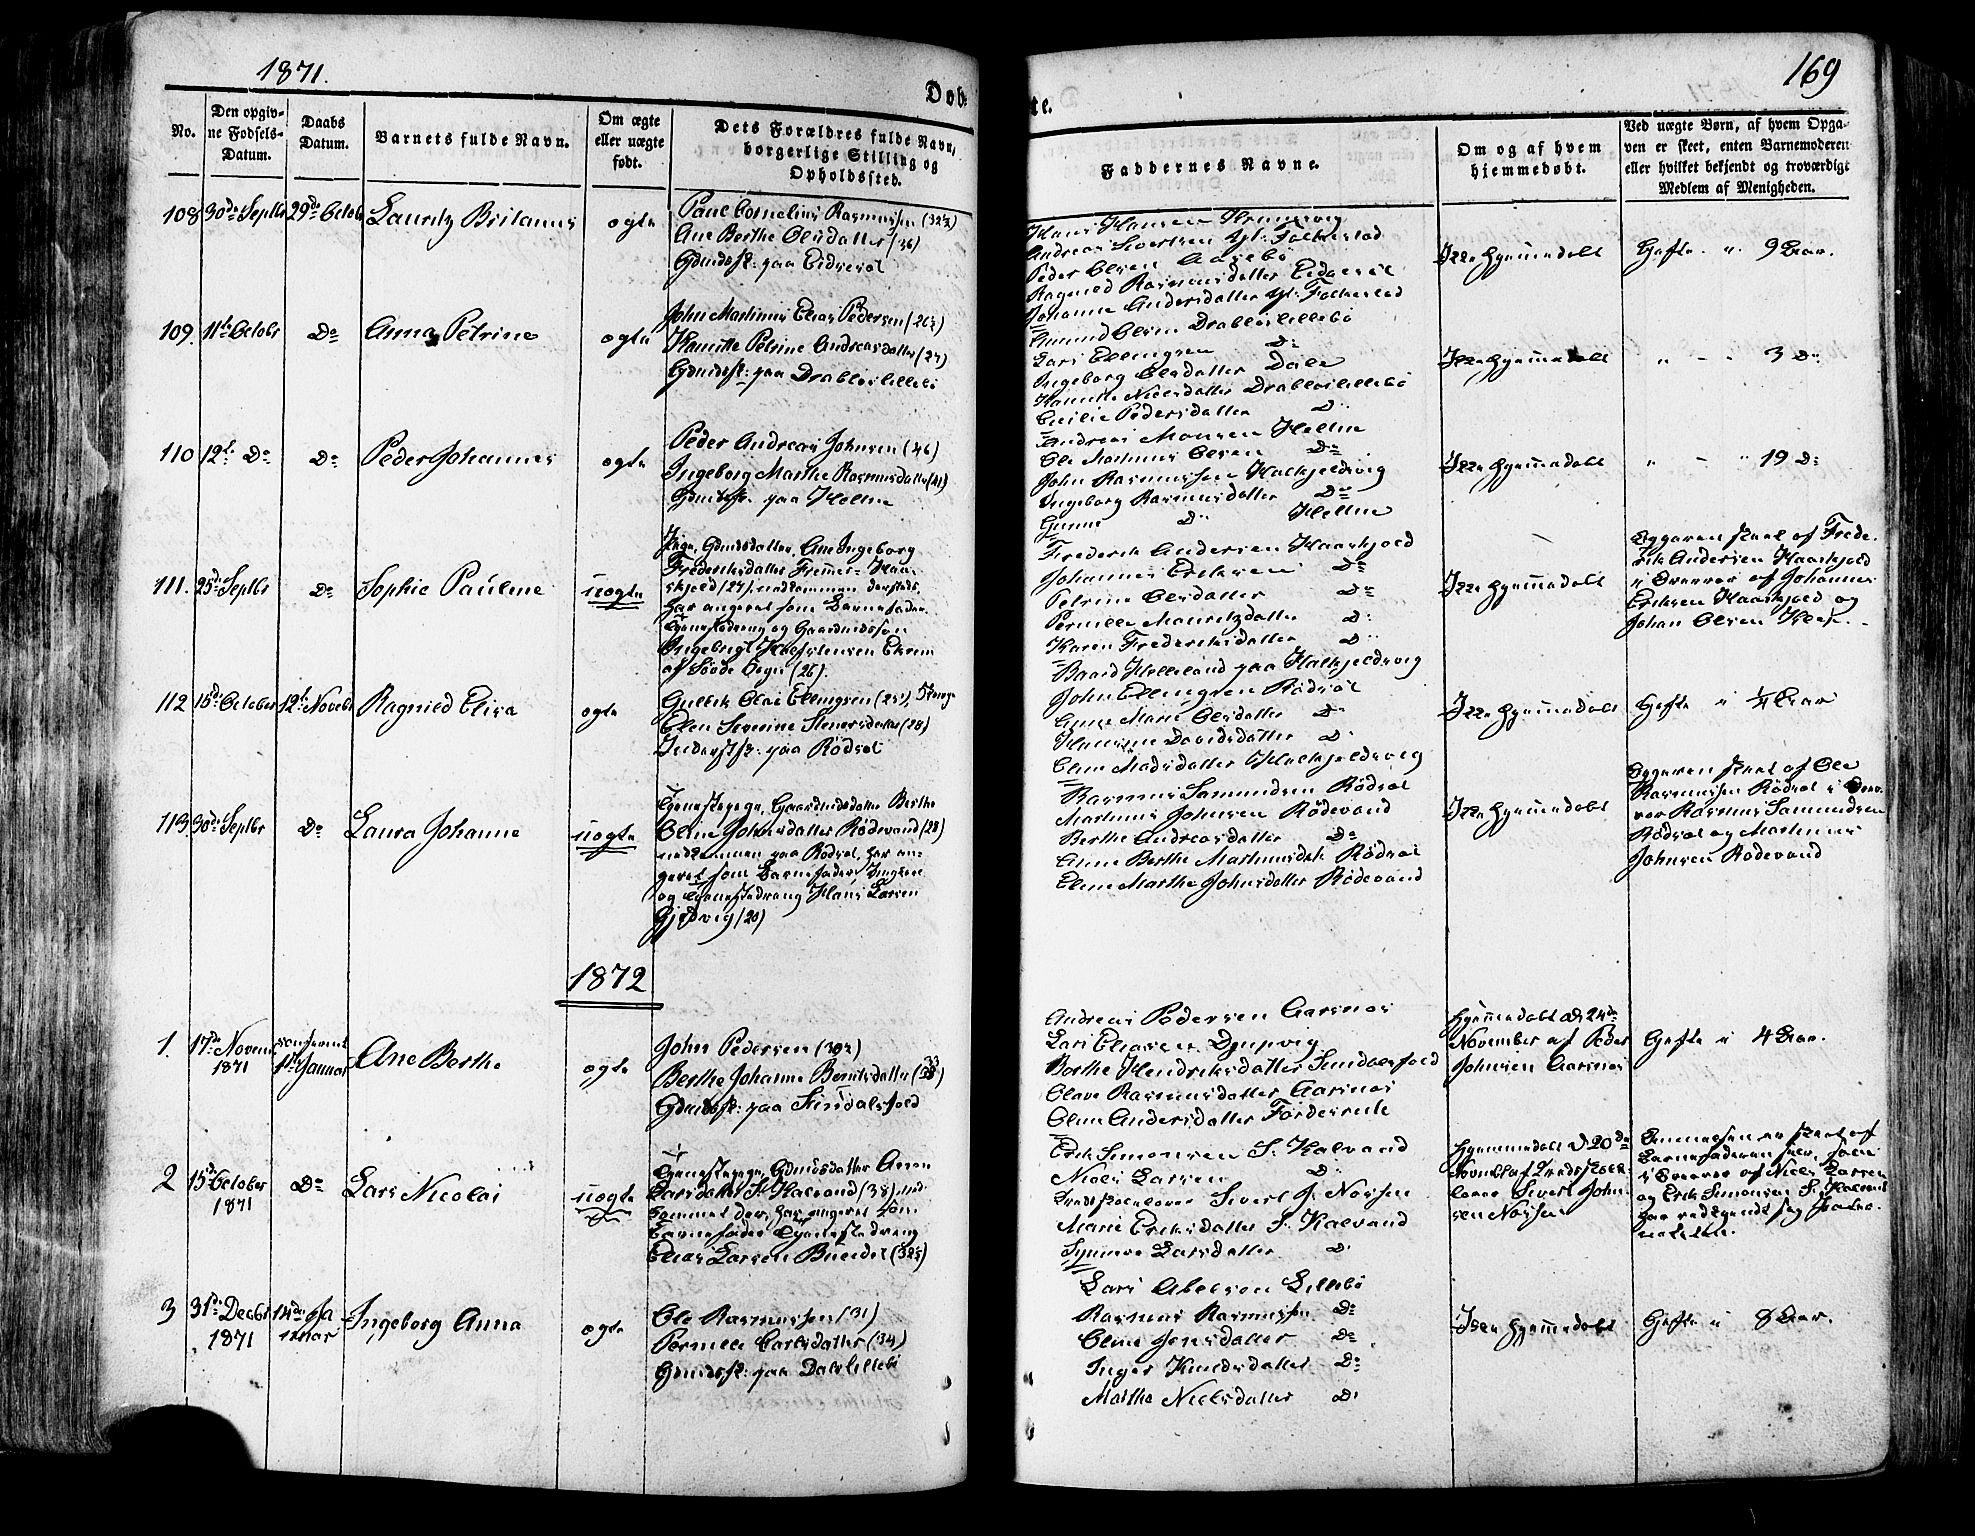 1871.
Døb-
te.
169
No.
Den opgiv-
ne Fødsels-
Datum.
Daabs
Datum.
Barnets fulde Navn.
Om ægte
eller uægte
født.
Dets Forældres fulde Navn,
borgerlige Stilling og
Opholdssted.
Faddernes Navne.
Om og af hvem
hjemmedøbt.
Ved uægte Børn, af hvem Opga-
ven er skeet, enten Barnemoderen
eller hvilket bekjendt og troværdigt
Medlem af Menigheden.
108 30de Septbr 29de Octobr Lauritz Britanus ægte
Paul Cornelius Rasmussen (32½)
Ane Berthe Olsdatter (36)
Gdmdsf: paa Eidsesøl
Hans Hansen
Andreas Sivertsen Folkestad
Peder Olsen Aasebø
Ragnild Rasmusdatter
Johanne Andersdatter Folkestad
Ikke hjemmedøbt
Gifte i 9 Aar.
109. 11te Octobr Do Anna Petrine ægte
John Martinus Elias Pedersen (26½)
Petrine Andreasdatter (27)
Gdmdsf: paa Drabløslillebø
Amund Olsen Drabløslillebø
Lars Ellingsen Do
Ingeborg Olsdatter Dale
Nielsdatter Drabløslillebø
Cecilie Pedersdatter Do
Ikke hjemmedøbt
" - " 3 Do
110 12te Do Do Peder Johannes ægte
Peder Andreas Johnsen (46)
Ingeborg Marthe Rasmusdatter (41)
Gdmdsf: paa Hellem
Andreas Monsen Hellem
Ole Martinus Olsen Do
John Rasmussen Halkjelsvig
Ingeborg Rasmusdatter Do
Gunne Do Hellem
Ikke hjemmedøbt
" - " 19 Do
111. 25de Septbr Do Sophie Pauline uægte
Pige, Gdmdsdatter, Ane Ingeborg
Frederiksdatter Fremmer-Haa-
skjold (24) nedkommen dersteds,
har angivet som Barnefader
Tjenestedreng og Gaardmdssøn
Ingebrigt Ekrem
af Søde Sogn (26).
Frederik Andersen Haaskjold
Johannes Eriksen Do
Petrine Olsdatter Do
Pernille Mauritzdatter Do
Karen Frederiksdatter Do
Ikke hjemmedøbt
Opgaven skeet af Frede-
rik Andersen Haaskjold
i Overvær af Johannes
Eriksen Haaskjold og
Johan Olsen
112 15de October 12te Novebr Ragnild Elisa ægte
Gulbrik Olai Ellingsen (25½),
Elen Severine Steinersdatter (28)
Inderstf: paa Rødsæt
Baard Helleland paa Halkjelsvig
John Ellingsen Rødsæt
Marie Olsdatter Do
Davidsdatter Do
Oline Madsdatter Halkjelsvig
Ikke hjemmedøbt
Gifte i ¼ Aar
113. 30de Septbr Do Laura Johanne uægte
Tjenestepige, Gaardmdsdatter Berthe
Oline Johnsdatter Rødevand (28)
nedkommen paa Rødsæt, har an-
givet som Barnefader Ungkarl
og Tjenestedreng Hans Larsen
Gjedvig (20)
Rasmus Samundsen Rødsæt
Martinus Johnsen Rødevand
Berthe Andreasdatter Do
Anne Berthe Martinusdatr Rødsæt
Oline Marthe Johnsdatter Rødevand
Ikke hjemmedøbt
Opgaven skeet af Ole
Rasmussen Rødsæt i Over-
vær Rasmus Samundsen
Rødsæt og Martinus
Johnsen Rødevand
1872
1. 17de Novem
1871
confirmeret
1ste Januar
Ane Berthe ægte
John Pedersen (30½)
Berthe Johanne Berntsdatter (33)
Gdmdsf: paa Sindalsfold
Andreas Pedersen Aarsnes
Lars Eliasen Djupvig
Berthe Hendriksdatter Sundalsfold
Olave Rasmusdatter Aarsnes
Oline Andersdatter Førdesrede
Hjemmedøbt d 24de
November af Peder
Johnsen Aarsnes
Gifte i 4 Aar.
2 15de October
1871
Do Lars Nicolai uægte
Tjenestepige, Gdmdsdatter Anne
Larsdatter S. Kalvand (38) ned-
kommet der, har angivet som
Barnefader Tjenestedreng
Elias Larsen Bueidet (32½)
Erik Simonsen S. Kalvand
Niels Larsen Do
Sivert J. Norsen
Marie Eriksdatter S. Kalvand
Synnøve Larsdatter Do
Hjemmedøbt d 20de
Novemb af Prædsskole-
lærer Sivert John-
sen Norsen
Anmeldsen er skeet af
Barnefaderen selv, som
i Overvær af Niels Larsen
og Erik Simonsen S. Kalvand
har vedkjendt sig Pater-
niteten.
3 31te Decbr
1871
14de Ja
nuar
Ingeborg Anna ægte
Ole Rasmussen (31)
Pernille Carlsdatter (34)
Gdmdsf: paa Dalslillebø
Lars Abelsen Lillebø
Rasmus Rasmussen Do
Oline Jensdatter Do
Inger Knudsdatter Do
Marthe Nielsdatter Do
Ikke hjemmedøbt
Gifte i 8 Aar.